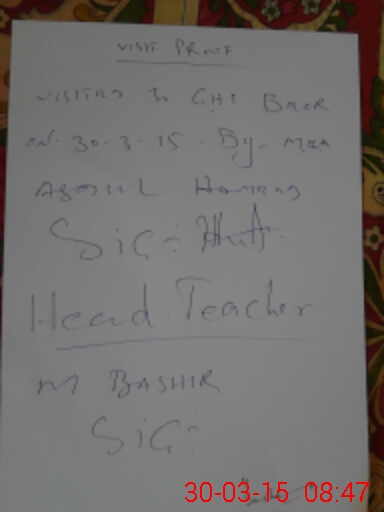 VISIT PROOF
VISITED TO GHS BMOR
on 30-3-15 By MEA
Sig:
Head Teacher
M BASHIR
Sig:
30-03-15 08:47